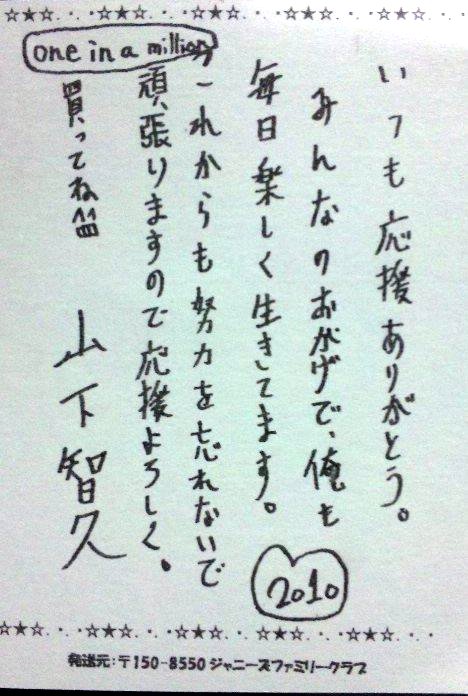 ☆★☆．．．☆★☆．．．☆★☆．．．☆★☆．．．☆★☆．．．
いつも応援ありがとう。
みんなのおかげで、俺も
毎日楽しく生きてます。
これからも努力を忘れないで
頑張りますので応援よろしく。
one in a million
買ってね
山下智久
2010
☆★☆．．．☆★☆．．．☆★☆．．．☆★☆．．．☆★☆．．．
発送元：〒150-8550 ジャニーズファミリークラブ